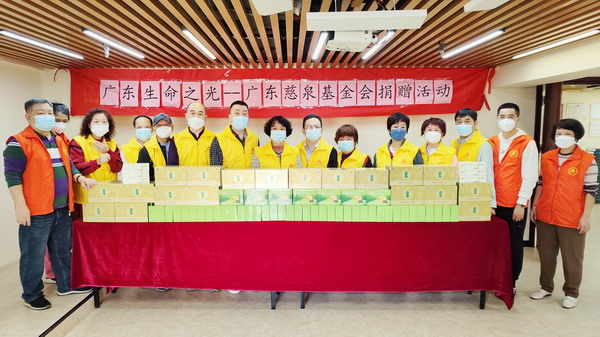 广东生命之光——广东慈泉基金会捐赠活动